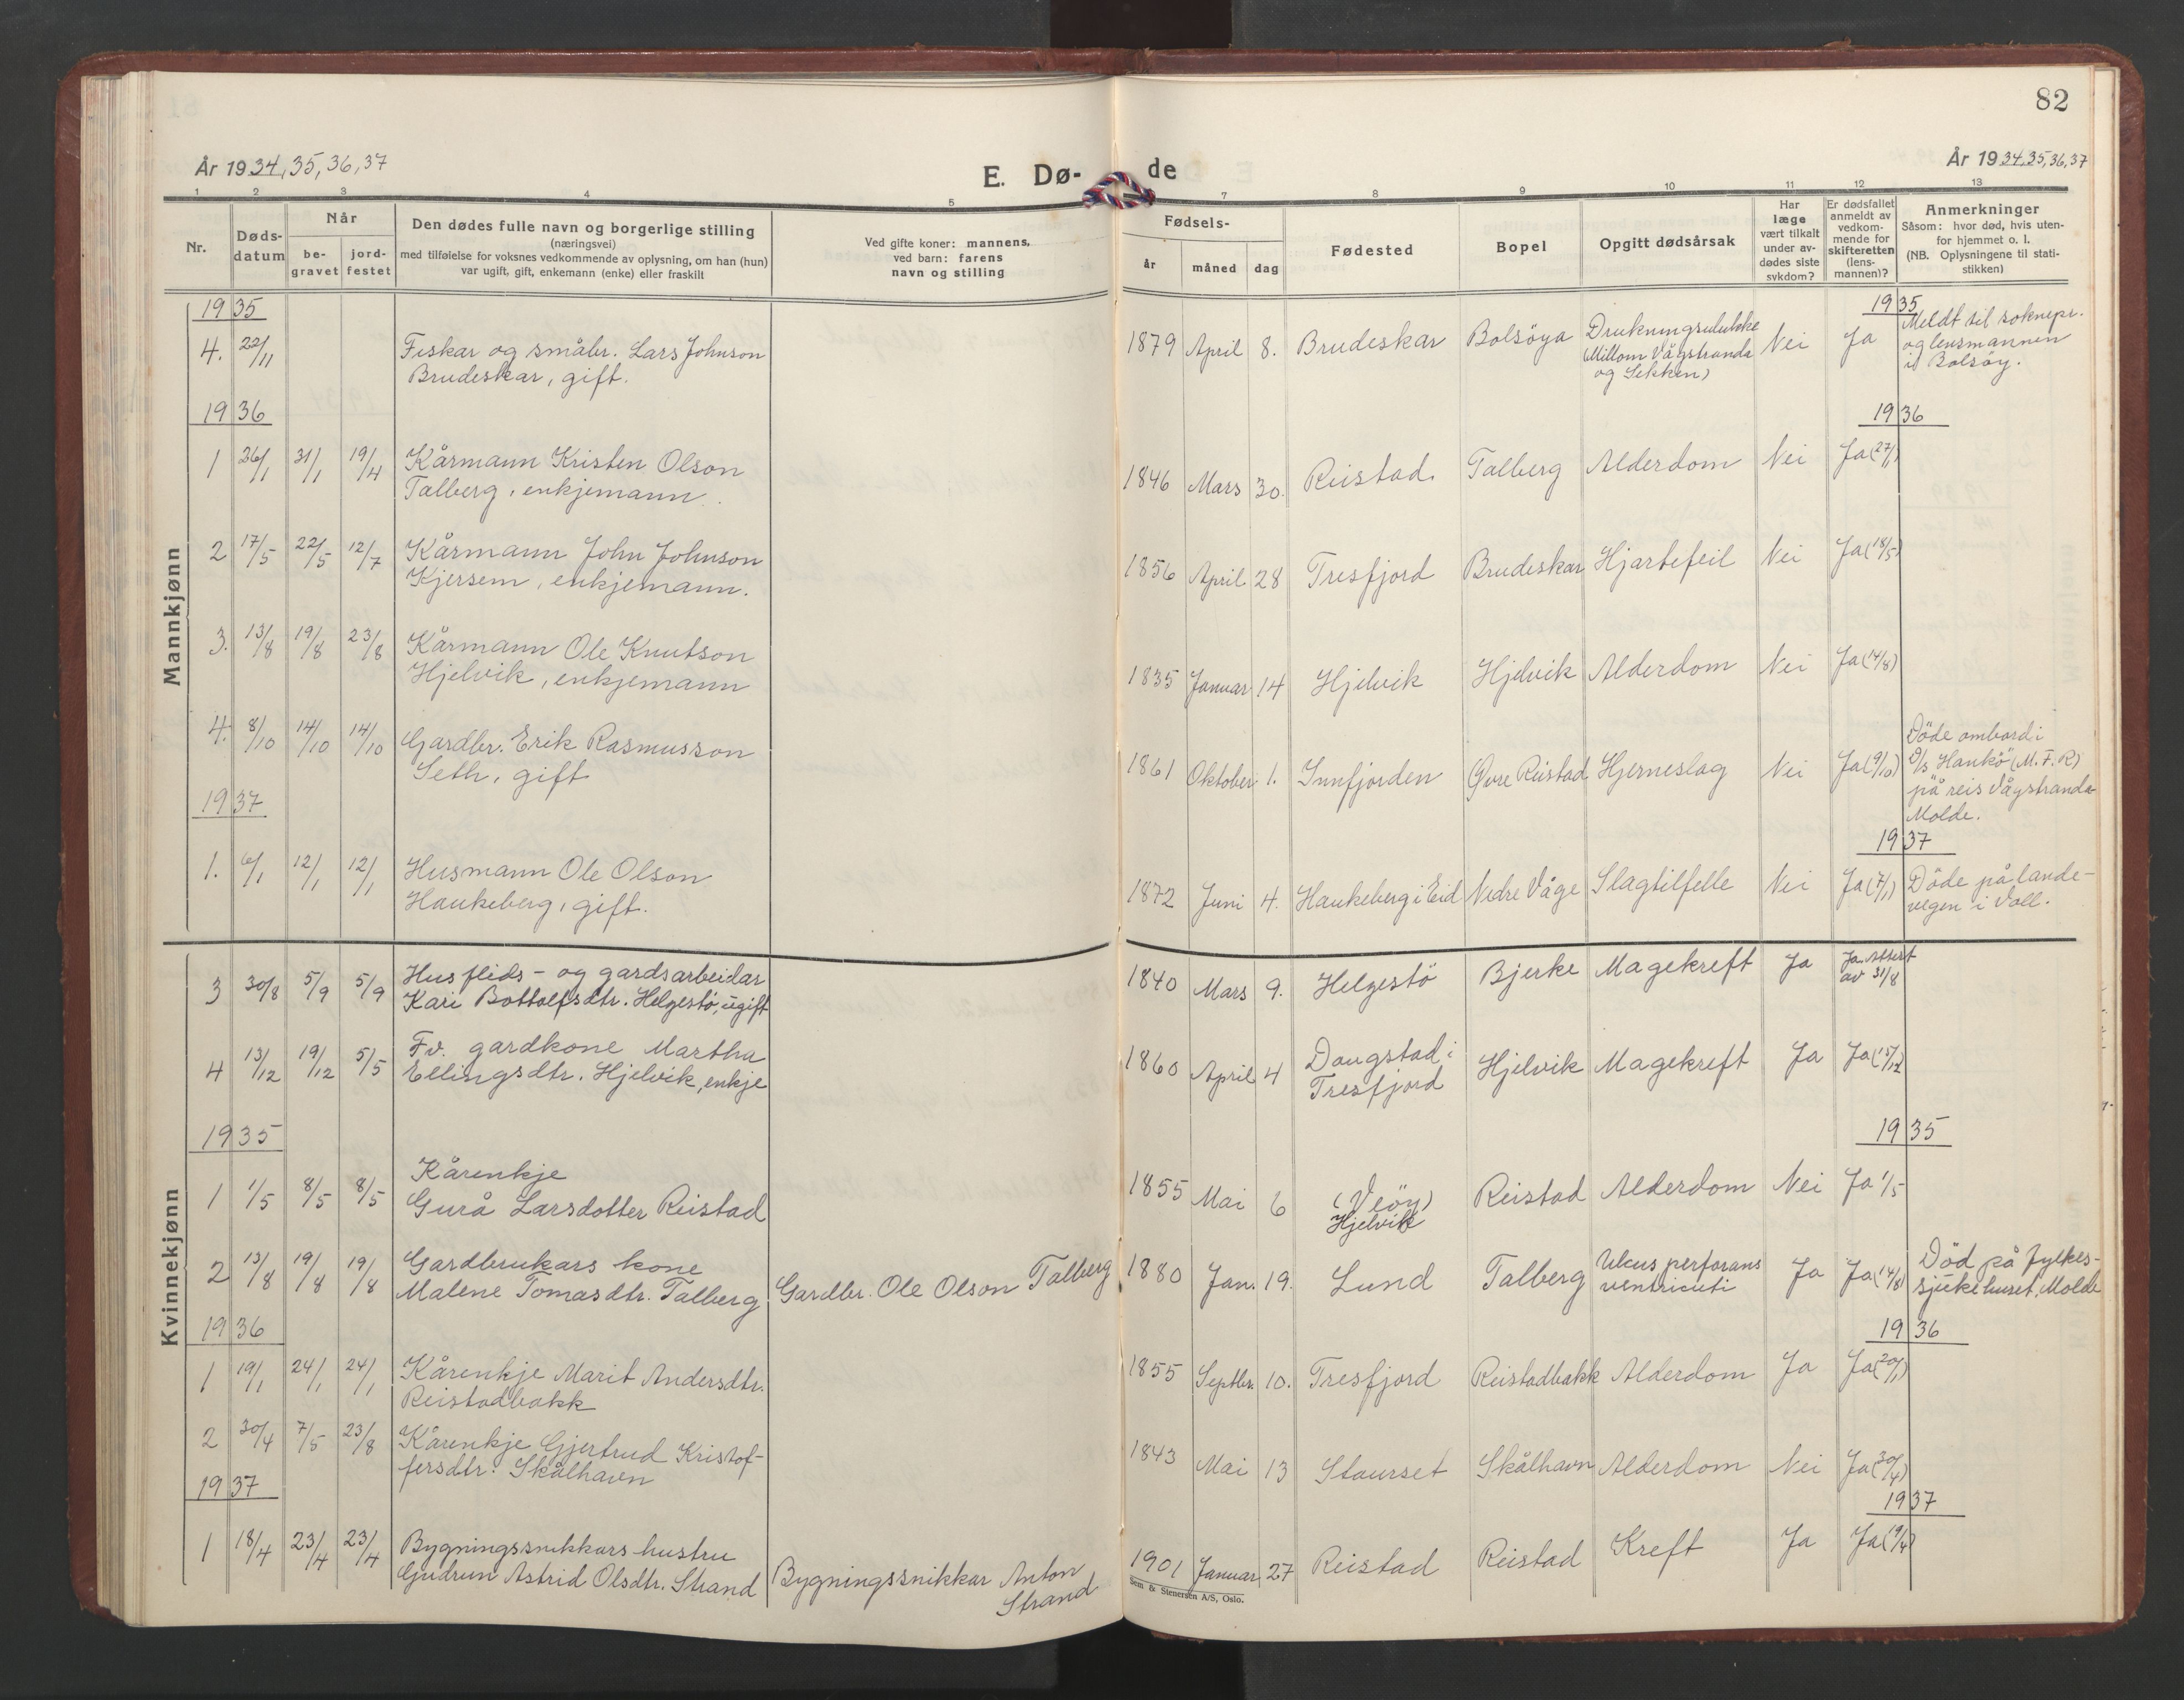 82
År 1934, 35, 36, 37
E. Dø-
de
År 1934, 35, 36, 37
1 2 3 4 5 7 8 9 10 11 12 13
Nr.
Døds-
datum
Når
be-
gravet
jord-
festet
Den dødes fulle navn og borgerlige stilling
(næringsvei)
med tilføielse for voksnes vedkommende av oplysning, om han (hun)
var ugift, gift, enkemann (enke) eller fraskilt
Ved gifte koner: mannens,
ved barn: farens
navn og stilling
Fødsels-
år
måned
dag
Fødested
Bopel
Opgitt dødsårsak
Har
læge
vært tilkalt
under av-
dødes siste
sykdom?
Er dødsfallet
anmeldt av
vedkom-
mende for
skifteretten
(lens-
mannen)?
Anmerkninger
Såsom: hvor død, hvis uten-
for hjemmet o. l.
(NB. Oplysningene til stati-
stikken)
Mannkjønn
1935
1935
4. 22/11 Fiskar og småbr. Lars Johnson
Brudeskar, gift.
1879 April 8. Brudeskar Bolsöya Drukningsulukke
(Millom Vågstranda
og Sekken)
Nei Ja
Meldt til soknepr.
og lensmannen
i Bolsöy.
1936
1936
1 26/1 31/1 19/4 Kårmann Kristen Olson
Talberg, enkjemann.
1846 Mars 30. Reistad. Talberg Alderdom Nei Ja (27/1)
2 17/5 22/5 12/7 Kårmann John Johnson
Kjersem, enkjemann.
1856 April 28 Tresfjord Brudeskar Hjartefeil Nei Ja (18/5)
3. 13/8 19/8 23/8 Kårmann Ole Knutson
Hjelvik, enkjemann
1835 Januar 14 Hjelvik Hjelvik Alderdom Nei Ja (14/8)
4. 8/10 14/10 14/10 Gardbr. Erik Rasmusson
Seth, gift
1861 Oktober 1. Innfjorden Øvre Reistad Hjerneslag Nei Ja (9/10)
Döde ombord i
D/s "Hankö" (M. F. R)
på reis Vågstranda-
Molde.
1937
1937
1. 6/1 12/1 12/1 Husmann Ole Olson
Haukeberg, gift.
1872 Juni 4. Haukeberg i Eid Nedre Våge Slagtilfelle Nei Ja (7/1)
Döde på lande-
vegen i Voll.
Kvinnekjønn
3 30/8 5/9 5/9 Husflids- og gardsarbeidar
Kari Bottolfsdtr. Helgestö, ugift
1840 Mars 9. Helgestö Bjerke Magekreft Ja Ja. Attest
av 31/8
4 13/12 19/12 5/5 Fv. gardkone Martha
Ellingsdtr. Hjelvik, enkje
1860 April 4 Daugstad i
Tresfjord
Hjelvik Magekreft Ja Ja (15/12)
1935
1935
1 1/5 8/5 8/5 Kårenkje
Gurå Larsdotter Reistad
1855 Mai 6 (Veöy)
Hjelvik
Reistad Alderdom Nei Ja 1/5
2 13/8 19/8 19/8 Gardbrukars kone
Malene Tomasdtr. Talberg
Gardbr. Ole Olson Talberg
1880 Jan. 19. Lund Talberg Ulcus perforans
ventricuti
Ja Ja (14/8)
Död på Fylkes-
sjukehuset, Molde
1936
1936
1 19/1 24/1 24/1 Kårenkje Marit Andersdtr.
Reistadbakk
1855 Septbr. 10. Tresfjord Reistadbakk Alderdom Ja Ja (20/1)
2 30/4 7/5 23/8 Kårenkje Gjertrud Kristof-
fersdtr. Skålhavn
1843 Mai 13 Staurset Skålhavn Alderdom Nei Ja (30/4)
1937
1937
1 18/4 23/4 23/4 Bygningssnikkars hustru
Gudrun Astrid Olsdtr. Strand
Bygningssnikkar Anton
Strand
1901 Januar 27 Reistad Reistad Kreft Ja Ja (19/4)
Sem & Stenersen A/S, Oslo.